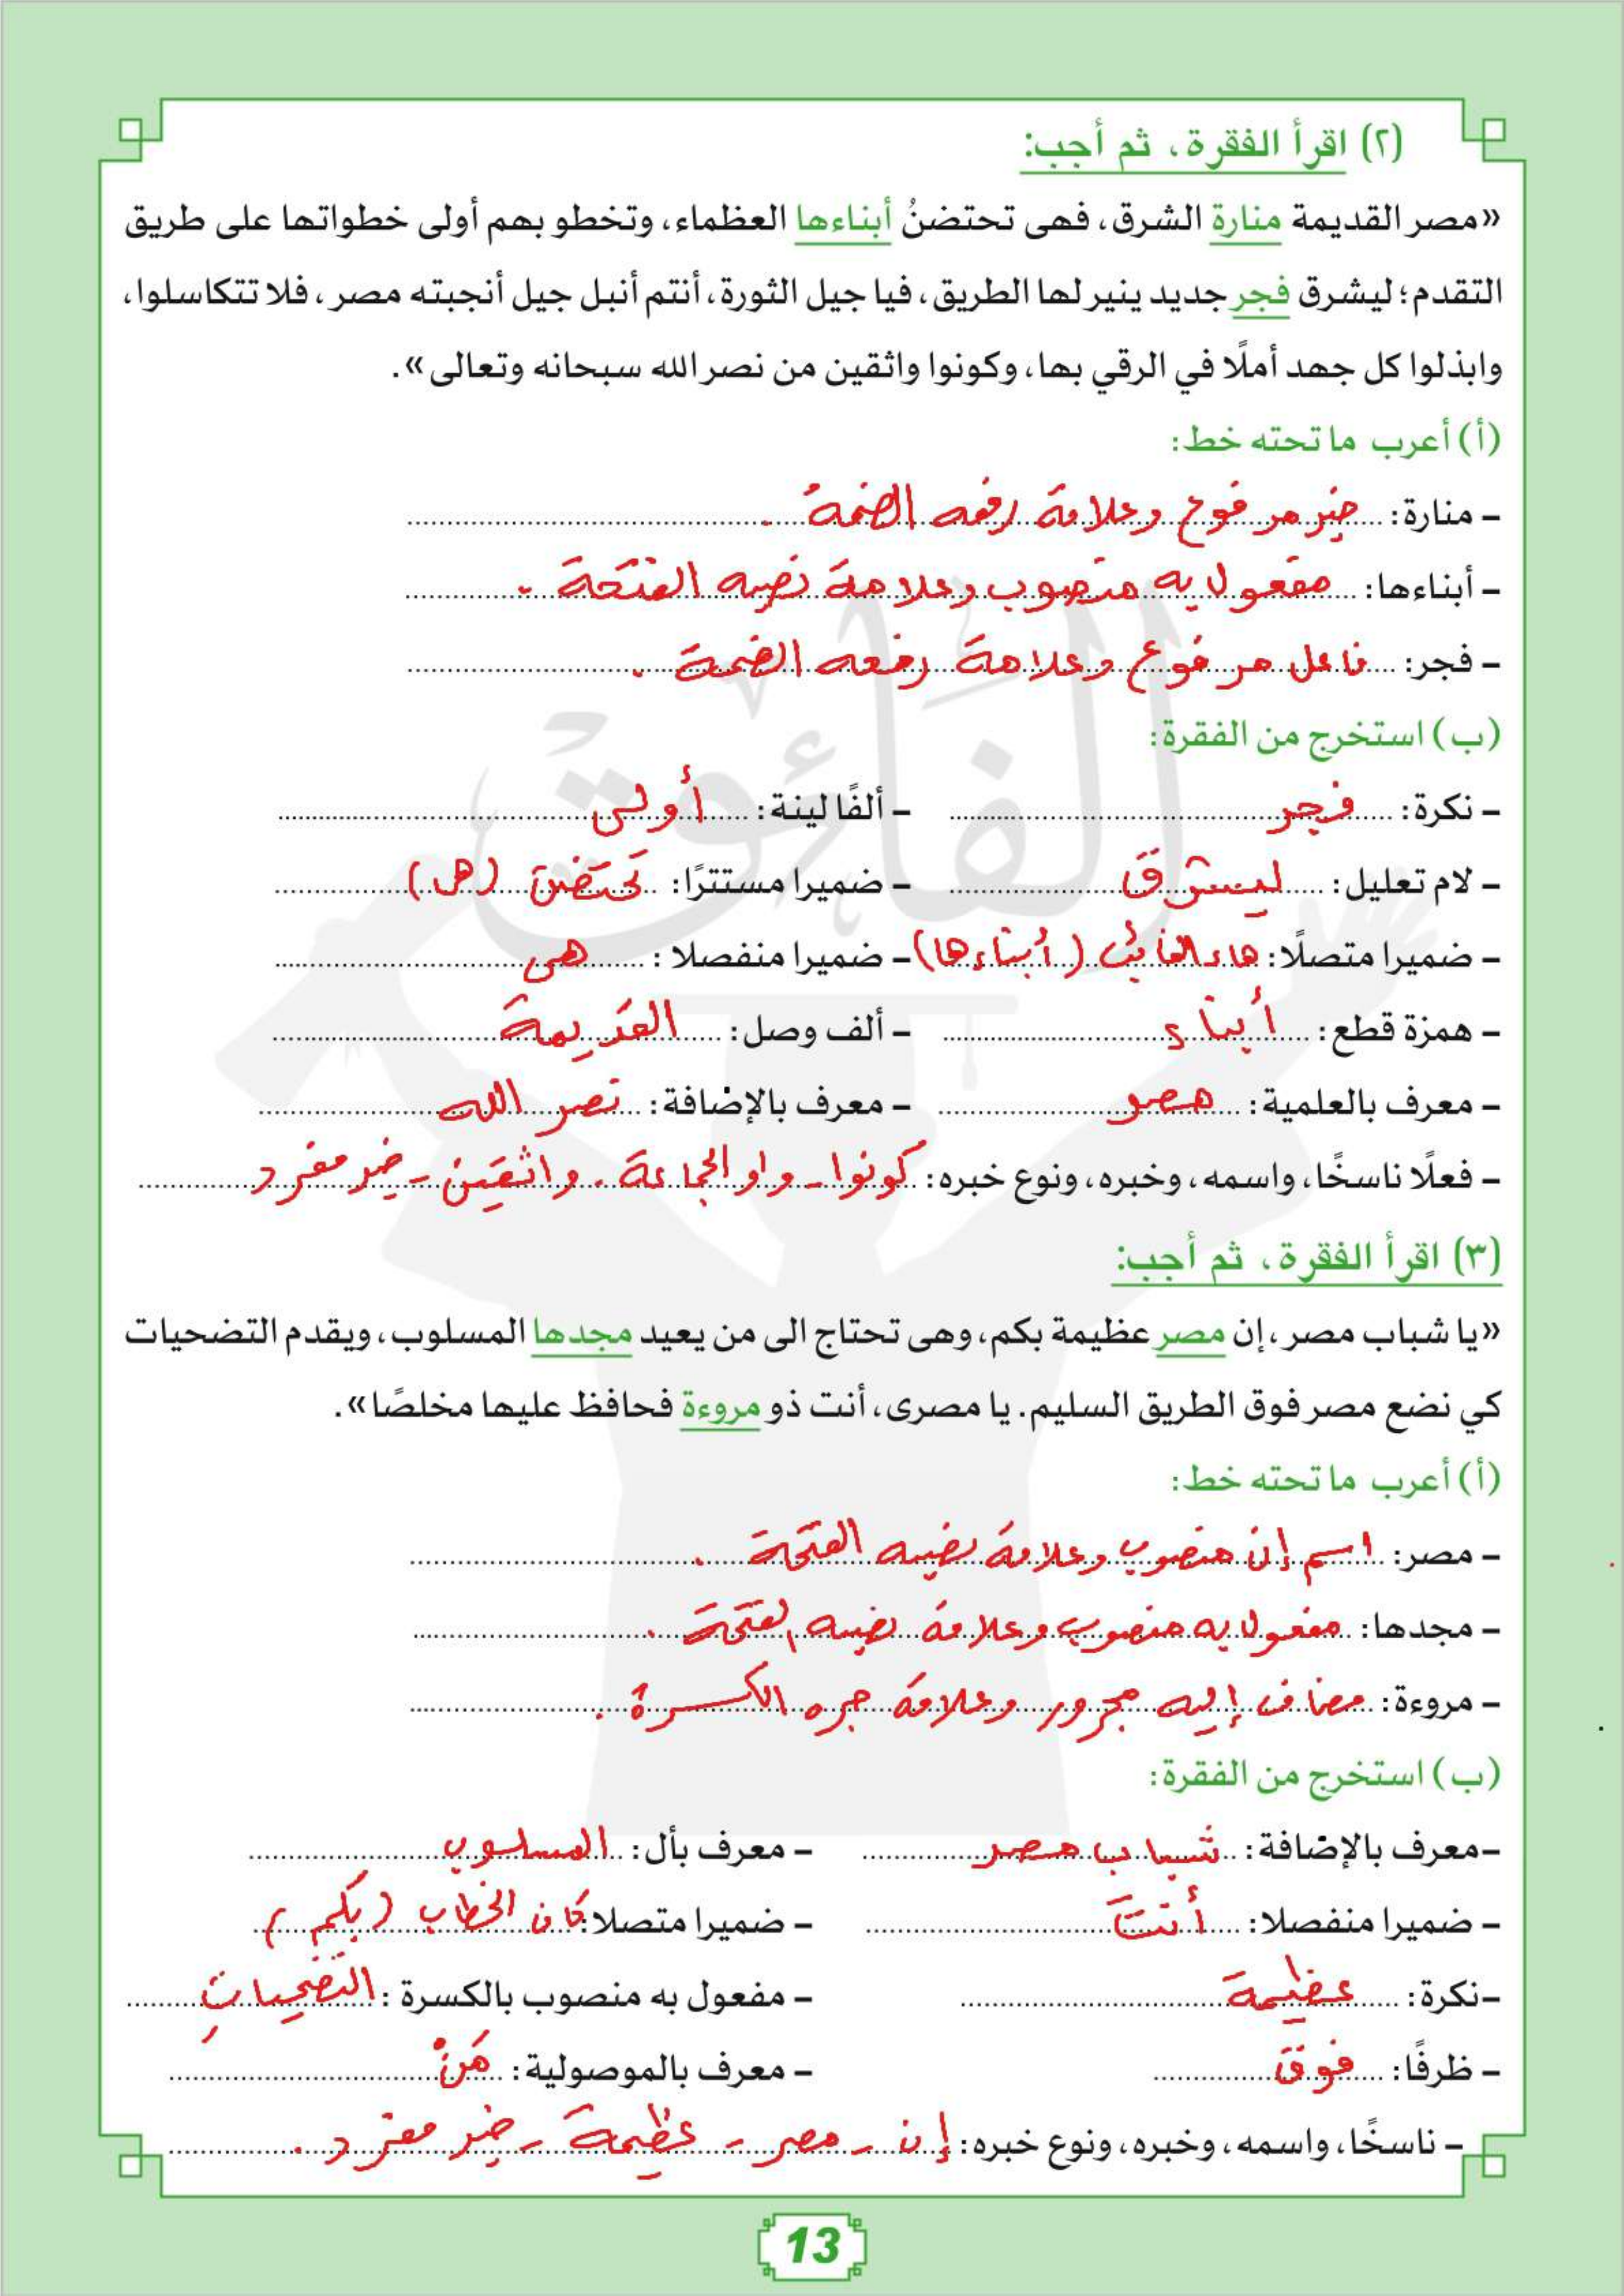 (٢) اقرأ الفقرة، ثم أجب:
«مصر القديمة منارة الشرق، فهى تحتضنُ أبناءها العظماء، وتخطو بهم أولى خطواتها على طريق
التقدم؛ ليشرق فجر جديد ينير لها الطريق، فيا جيل الثورة، أنتم أنبل جيل أنجبته مصر، فلا تتكاسلوا،
وابذلوا كل جهد أملًا في الرقي بها، وكونوا واثقين من نصر الله سبحانه وتعالى».
(أ) أعرب ما تحته خط:
- منارة: خبر مرفوع وعلامة رفعه الضمة .
- أبناءها: مفعول به منصوب وعلامة نصبه الفتحة .
- فجر: فاعل مرفوع وعلامة رفعه الضمة .
(ب) استخرج من الفقرة:
- نكرة: فجر - ألفًا لينة: أولى
- لام تعليل: ليشرق - ضميرا مستترًا: تحتضن (هى)
- ضميرا متصلًا: هاء الغائب (أبناءها) - ضميرا منفصلا: هى
- همزة قطع: أبناء - ألف وصل: القديمة
- معرف بالعلمية: مصر - معرف بالإضافة: نصر الله
- فعلًا ناسخًا، واسمه، وخبره، ونوع خبره: كونوا - واو الجماعة . واثقين - خبر مفرد
(٣) اقرأ الفقرة، ثم أجب:
«يا شباب مصر، إن مصر عظيمة بكم، وهى تحتاج الى من يعيد مجدها المسلوب، ويقدم التضحيات
كي نضع مصر فوق الطريق السليم. يا مصرى، أنت ذو مروءة فحافظ عليها مخلصًا».
(أ) أعرب ما تحته خط:
- مصر: اسم إن منصوب وعلامة نصبه الفتحة .
- مجدها: مفعول به منصوب وعلامة نصبه الفتحة .
- مروءة: مضاف إليه مجرور وعلامة جره الكسرة .
(ب) استخرج من الفقرة:
- معرف بالإضافة: شباب مصر - معرف بأل: المسلوب
- ضميرا منفصلا: أنت - ضميرا متصلا: كاف الخطاب (بكم)
- نكرة: عظيمة - مفعول به منصوب بالكسرة: التضحياتِ
- ظرفًا: فوق - معرف بالموصولية: مَنْ
- ناسخًا، واسمه، وخبره، ونوع خبره: إن - مصر - عظيمة - خبر مفرد .
الفائق
13